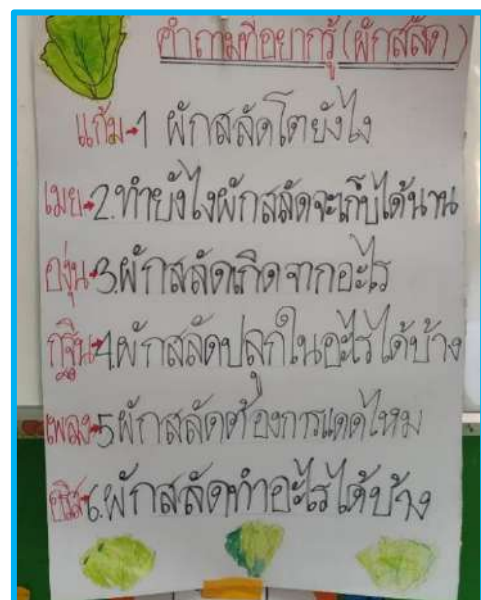 คำถามที่อยากรู้ (ผักสลัด)
แก้ม→1 ผักสลัดโตยังไง
เมย→2.ทำยังไงผักสลัดจะเก็บได้นาน
องุ่น→3.ผักสลัดเกิดจากอะไร
4.ผักสลัดปลูกในอะไรได้บ้าง
เพลง→5 ผักสลัดต้องการแดดไหม
6.ผักสลัดทำอะไรได้บ้าง